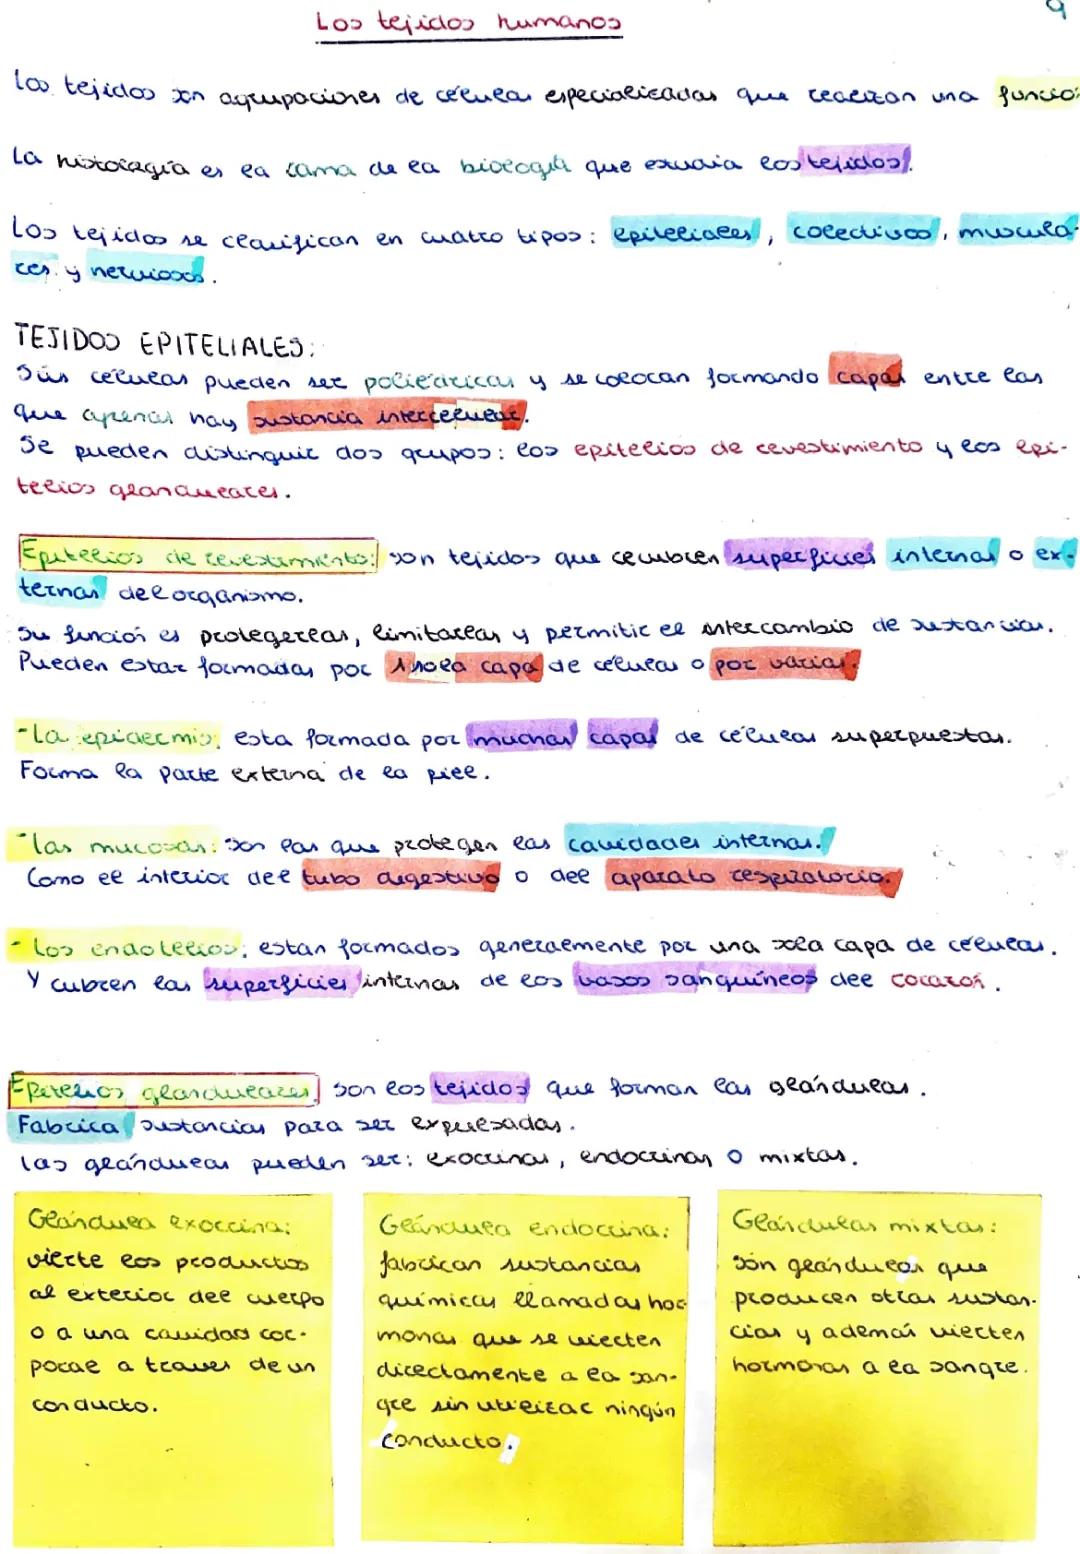 Los tejidos humanos
9
Los tejidos son agrupaciones de células especializadas que realizan una funcio
La histología es la rama de la biología que estudia los tejidos.
Los tejidos se clasifican en cuatro tipos: epiteliales, colectivos, muscula-
res y nerviosos.
TEJIDOS EPITELIALES:
Sus células pueden ser poliédricas y se colocan formando capas entre las
que apenas hay sustancia intercelular.
Se pueden distinguir dos grupos: los epitelios de revestimiento y los epi-
telios glandulares.
Epitelios de revestimiento: son tejidos que recubren superficies internas o ex-
ternas del organismo.
Su función es protegerlas, limitarlas y permitir el intercambio de sustancias.
Pueden estar formadas por 1 sola capa de células o por varias.
- La epidermis: esta formada por muchas capas de células superpuestas.
Forma la parte externa de la piel.
- Las mucosas: Son las que protegen las cavidades internas.
Como el interior del tubo digestivo o del aparato respiratorio.
- Los endotelios: estan formados generalmente por una sola capa de células.
Y cubren las superficies internas de los vasos sanguíneos del corazón.
Epitelios glandulares: son los tejidos que forman las glándulas.
Fabrica sustancias para ser expulsadas.
Las glándulas pueden ser: exocrinas, endocrinas o mixtas.
Glándula exocrina:
vierte los productos
al exterior del cuerpo
o a una cavidad cor-
poral a traves de un
conducto.
Glándula endocrina:
fabrican sustancias
químicas llamadas hor-
monas que se vierten
directamente a la san-
gre sin utilizar ningún
conducto.
Glándulas mixtas:
Son glándulas que
producen otras sustan-
cias y además vierten
hormonas a la sangre.